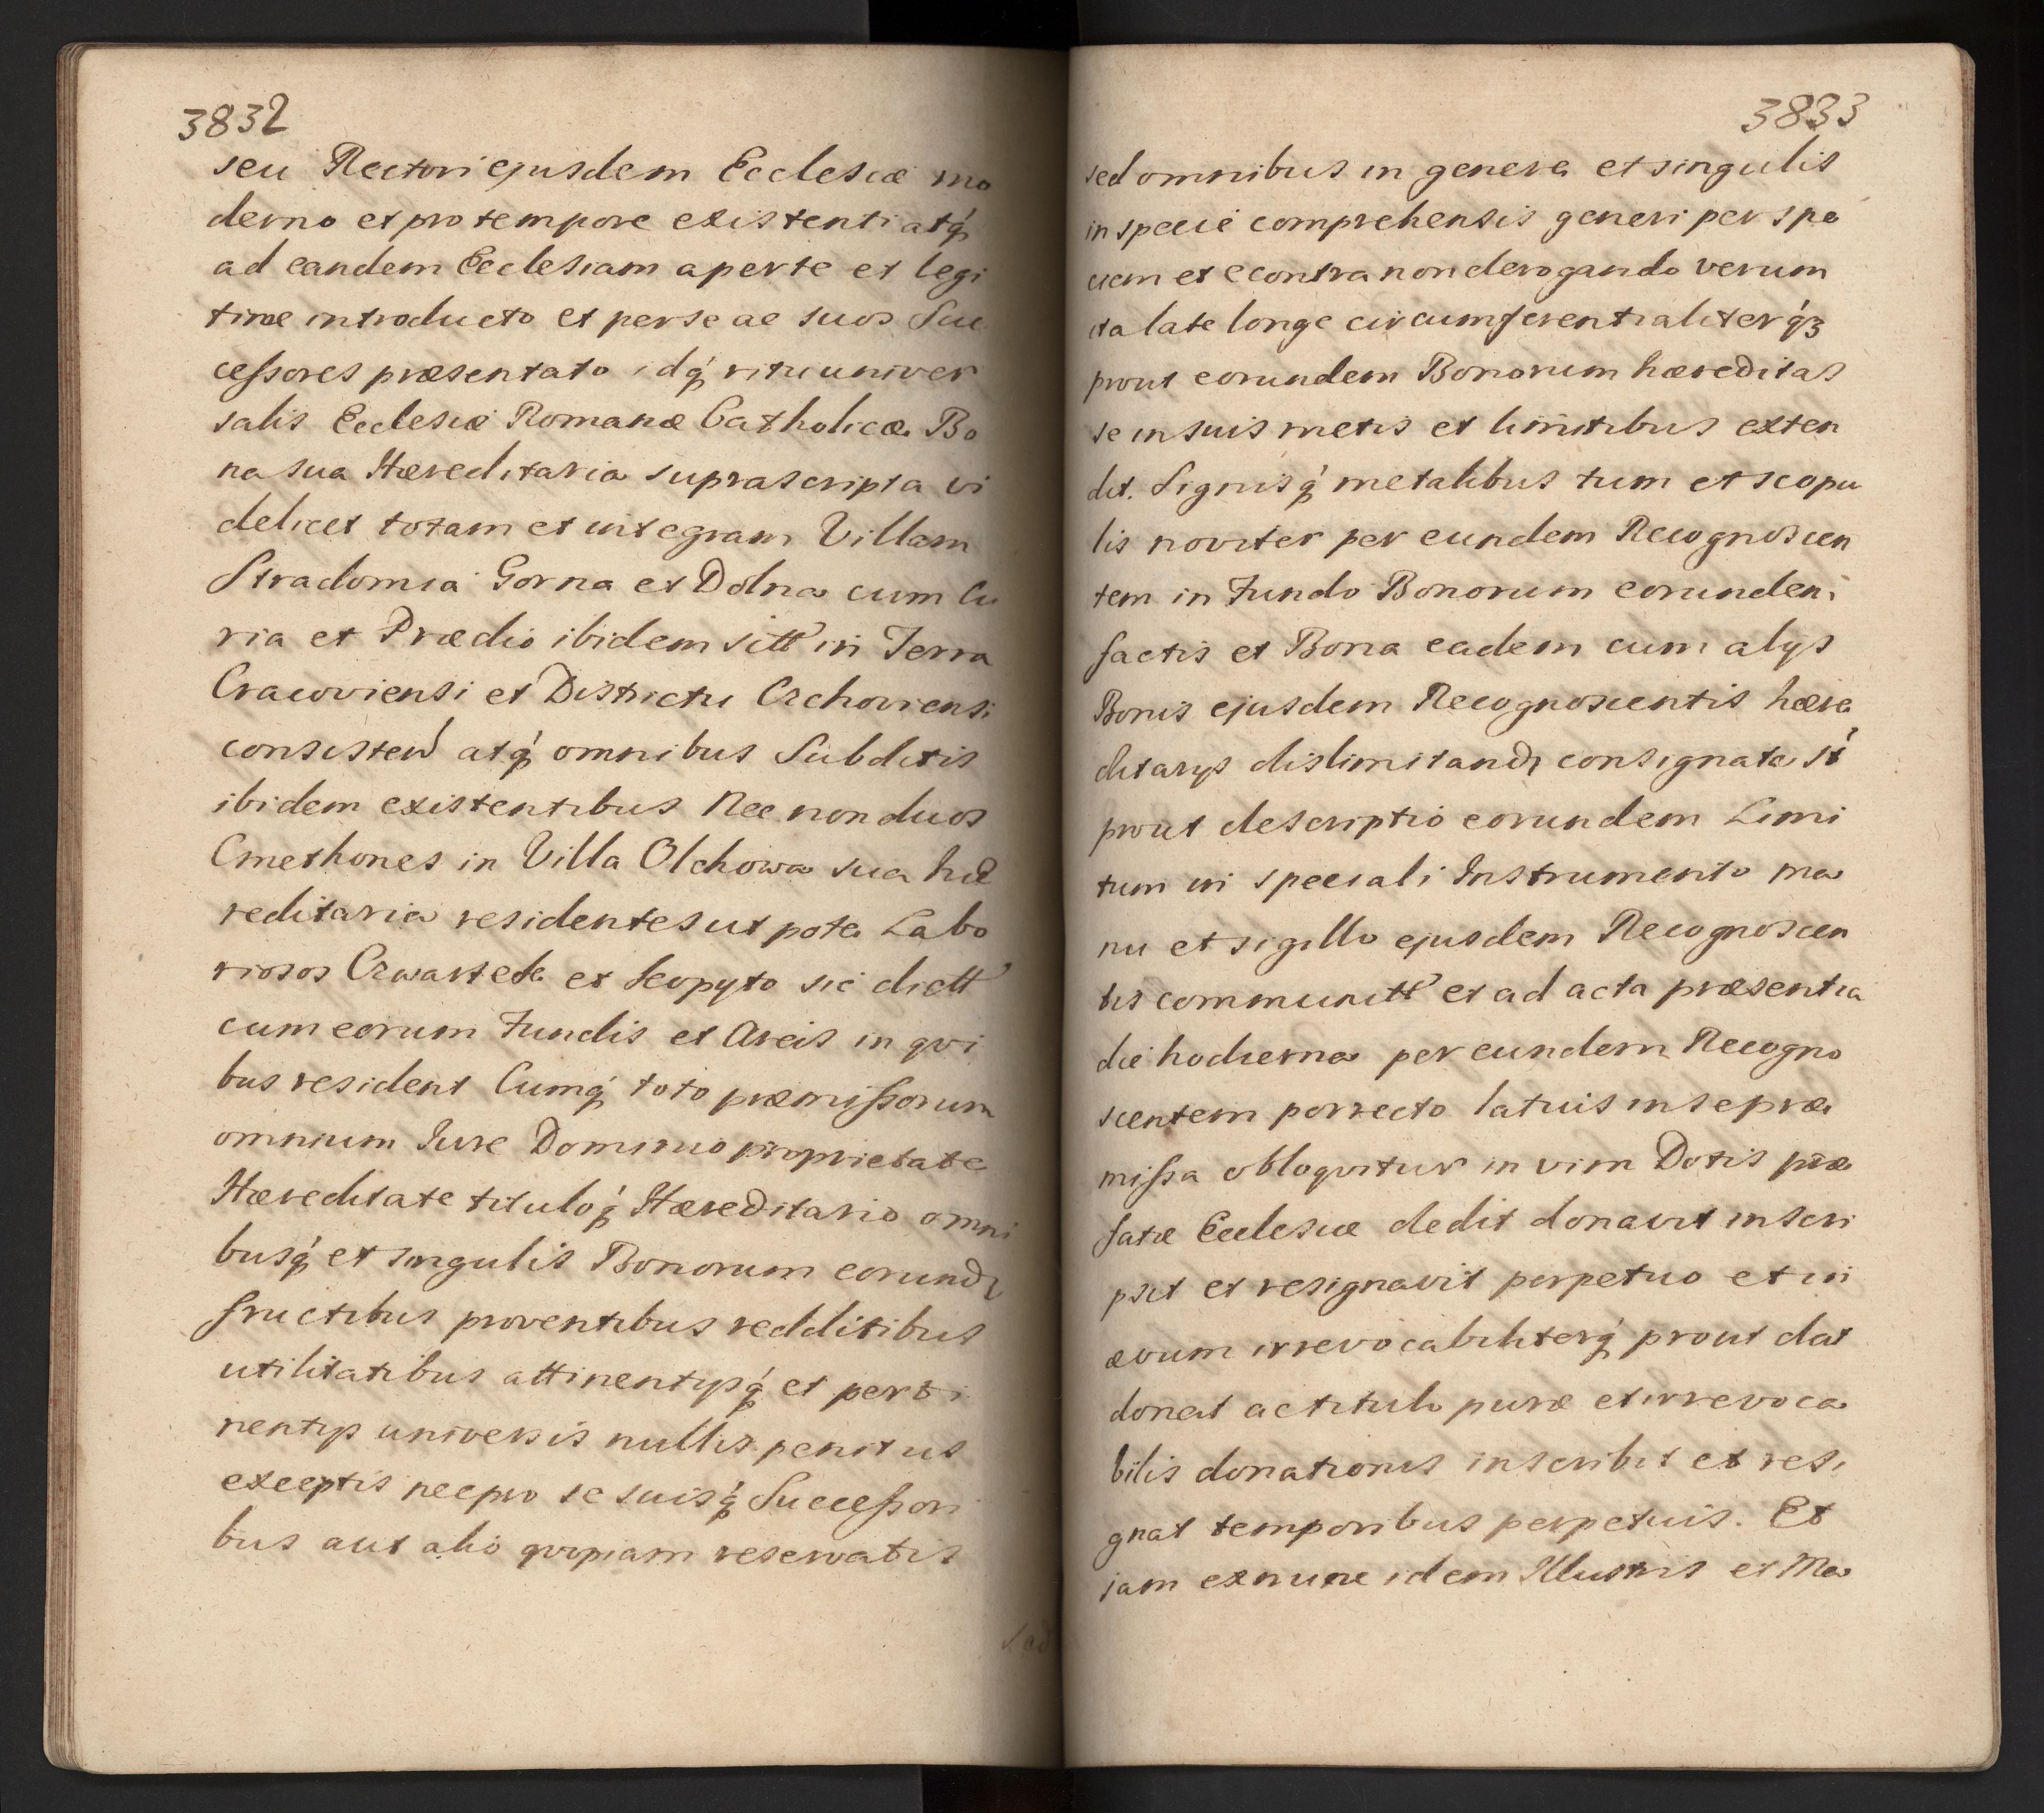 3832
seu Rectori ejusdem Ecclesiæ mo
derno et pro tempore existenti atq́
ad eandem Ecclesiam aperte et legi
time introducto et per se ac suos Suc
cessores præsentato idq́ ritu univer
salis Ecclesiæ Romanæ Catholicæ Bo
na sua Hæreditaria suprascripta vi
delicet totam et integram Villam
Stradomia Gorna et Dolna cum Cu
ria et Prædio ibidem sitt in Terra
Cracoviensi et Districtu Czchoviensi
consisten atq́ omnibus Subditis
ibidem existentibus Nec non duos
Cmethones in Villa Olchowa sua hæ
reditaria residentes ut pote Labo
riosos et Scopyto sic dictt
cum eorum Fundis et Areis in qvi
bus resident Cumq́ toto præmissorum
omnium Jure Dominio proprietate
Hæreditate tituloq́ Hæreditario omni
busq́ et singulis Bonorum eorund
fructibus proventibus redditibus
utilitatibus attinentijsq́ et perti
nentijs universis nullis penitus
exceptis nec pro se suisq́ Successori
bus aut alio qvopiam reservatis
sed
3833
sed omnibus in genere et singulis
in specie comprehensis generi per spe
ciem et econtra non derogando verum
ita late longe circumferentialiterq́3
prout eorundem Bonorum hæreditas
se in suis metis et limitibus exten
dit. Signisq́ metalibus tum et scopu
lis noviter per eundem Recognoscen
tem in Fundo Bonorum eorundem
factis et Bona eadem cum alijs
Bonis ejusdem Recognoscentis hære
ditarijs dislimitand consignata st́
prout descriptio eorundem Limi
tum in speciali Instrumento ma
nu et sigillo ejusdem Recognoscen
tis communitt et ad acta præsentia
die hodierna per eundem Recogno
scentem porrecto latius in se præ
missa obloqvitur in vim Dotis præ
fatæ Ecclesiæ dedit donavit inscri
psit et resignavit perpetuo et in
ævum irrevocabiliterq́ prout dat
donat ac titulo puræ et irrevoca
bilis donationis inscribit et resi
gnat temporibus perpetuis. Et
jam ex nunc idem Illustris et Ma